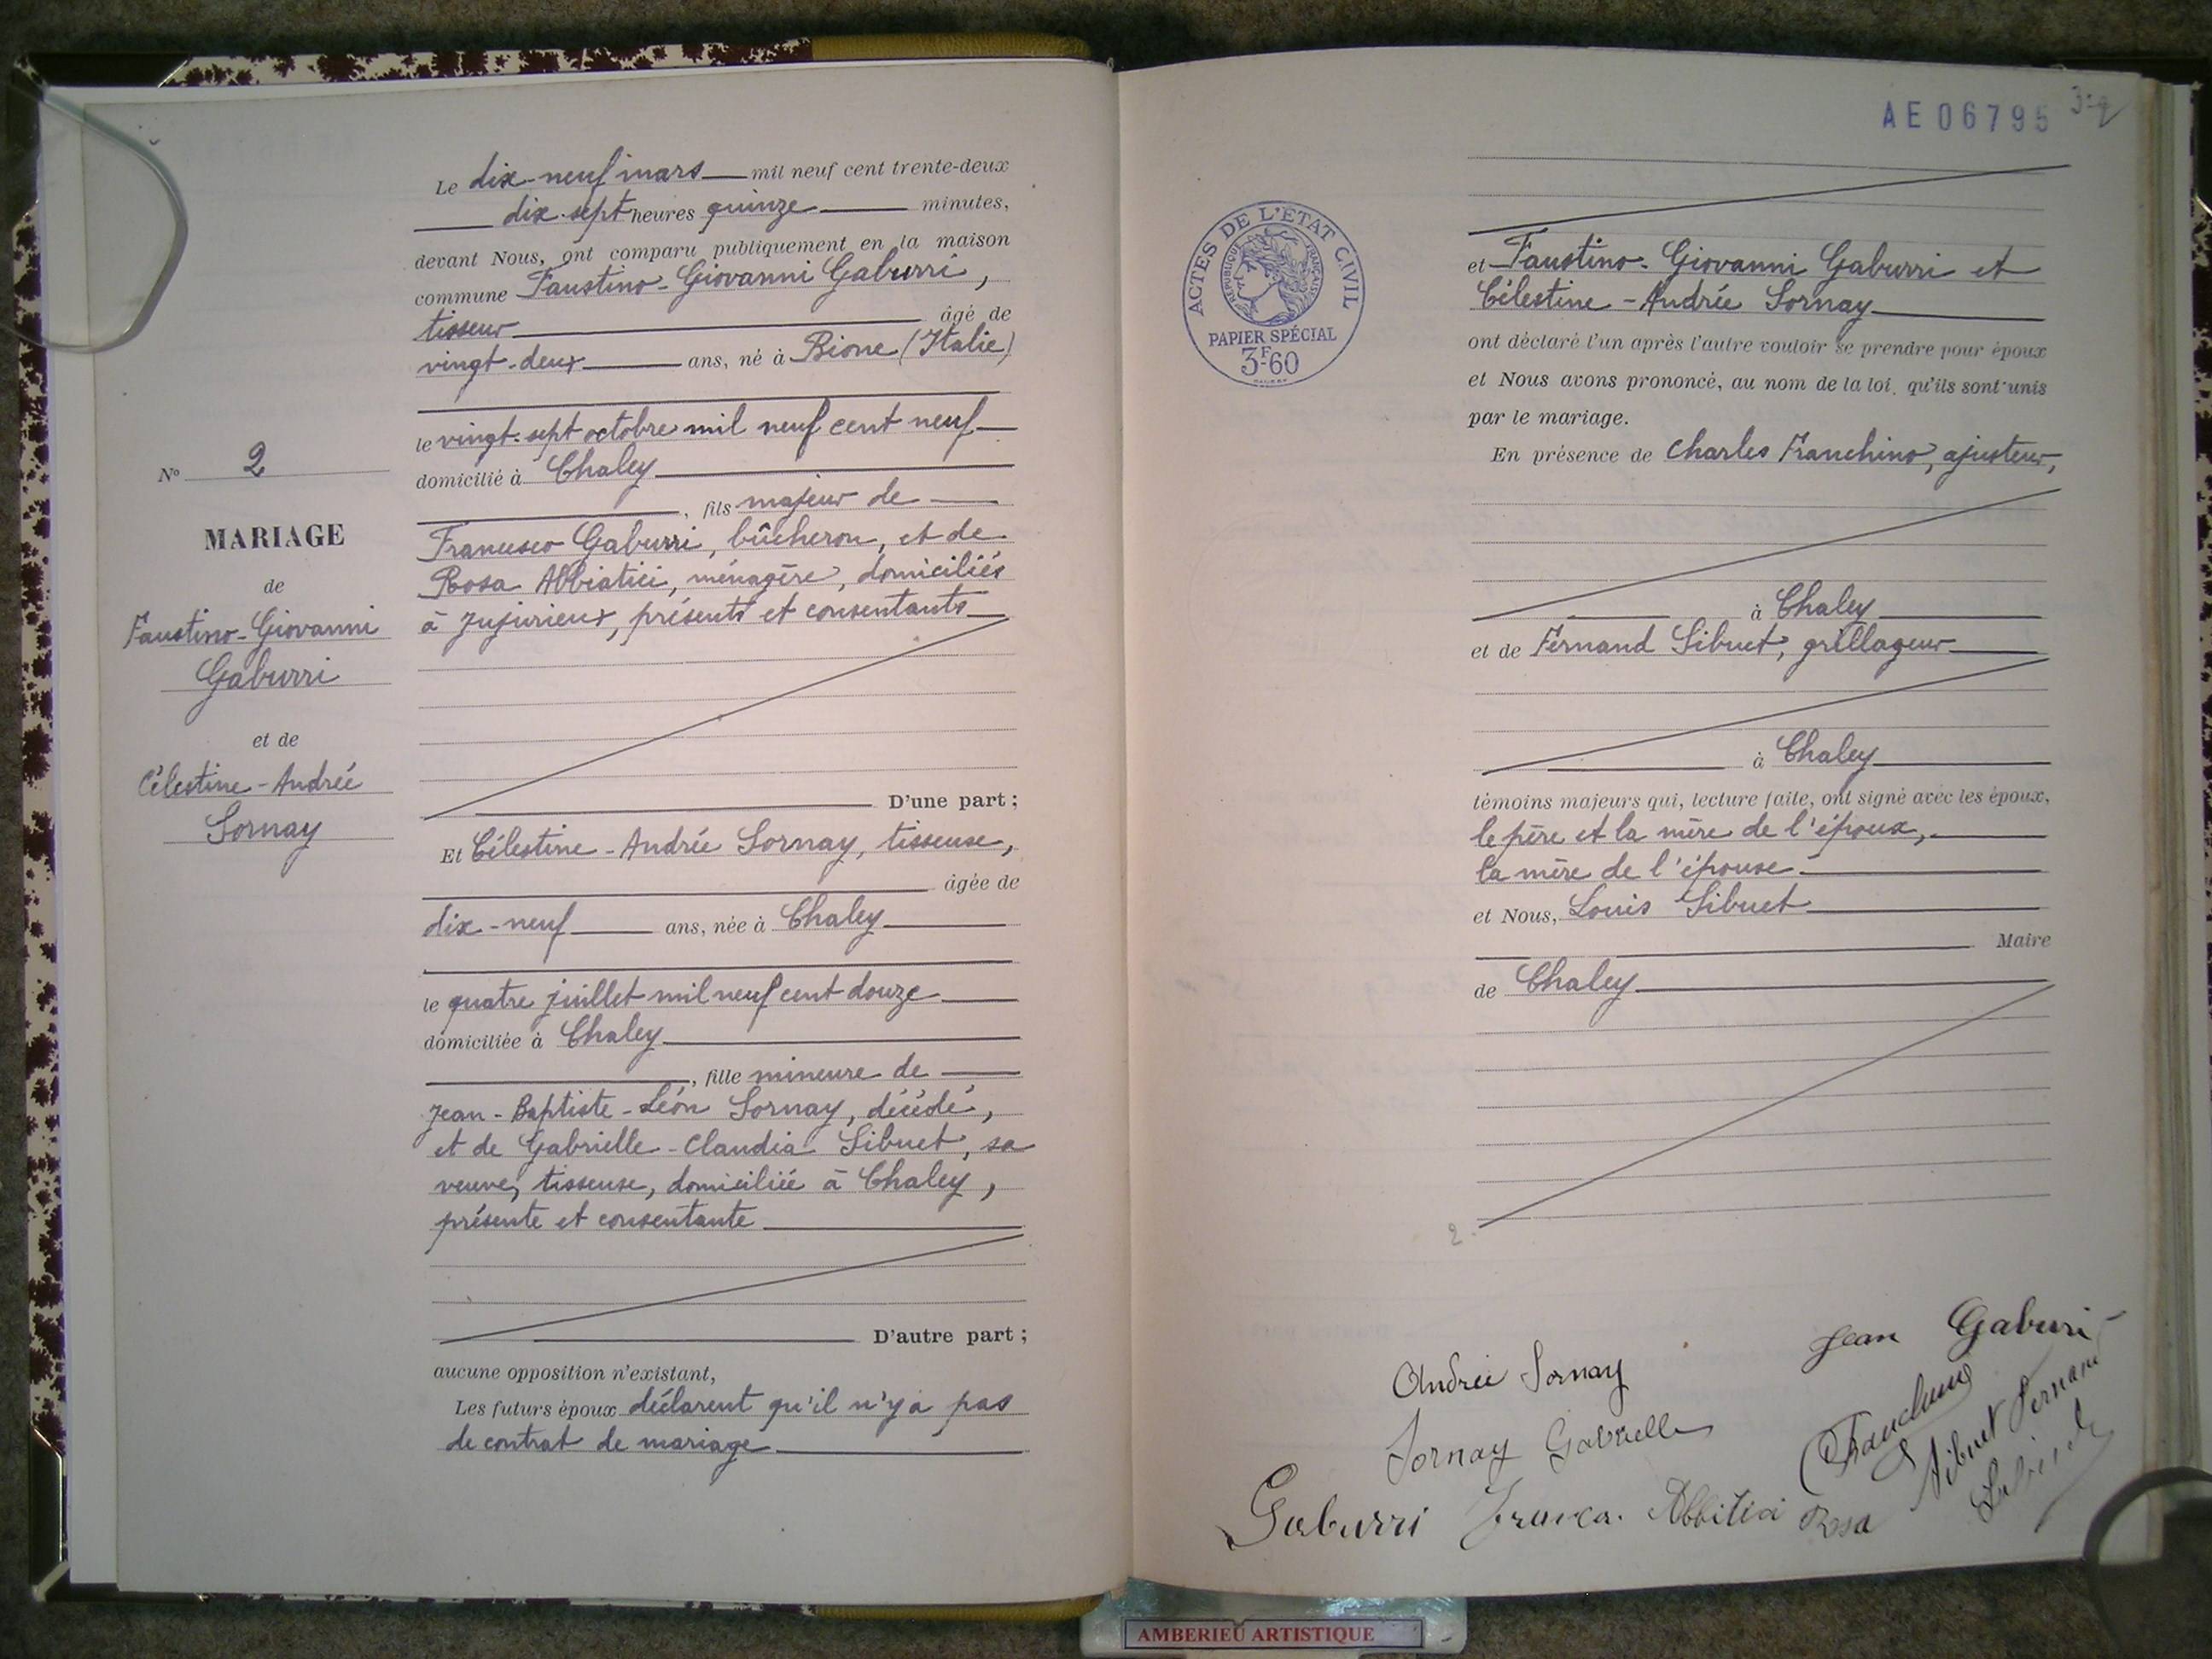 Le dix-neuf mars mil neuf cent trente-deux
dix-sept heures quinze minutes,
devant Nous, ont comparu publiquement en la maison
commune Faustino-Giovanni Gaburri,
tisseur âgé de
vingt-deux ans, né à Bione (Italie)
le vingt-sept octobre mil neuf cent neuf
domicilié à Chaley
, fils majeur de
Francesco Gaburri, bûcheron, et de
Rosa Abbiatici, ménagère, domiciliés
à Jujurieux, présents et consentants
D'une part ;
Et Célestine-Andrée Sornay, tisseuse,
âgée de
dix-neuf ans, née à Chaley
le quatre juillet mil neuf cent douze
domiciliée à Chaley
, fille mineure de
Jean-Baptiste-Léon Sornay, décédé,
et de Gabrielle-Claudia Sibuet, sa
veuve, tisseuse, domiciliée à Chaley,
présente et consentante
D'autre part ;
aucune opposition n'existant,
Les futurs époux déclarent qu'il n'y a pas
de contrat de mariage
No 2
MARIAGE
de
Faustino-Giovanni
Gaburri
et de
Célestine-Andrée
Sornay
AE 06795
ACTES DE L'ETAT CIVIL
REPUBLIQUE FRANÇAISE
PAPIER SPÉCIAL
3F60
et Faustino-Giovanni Gaburri et
Célestine-Andrée Sornay
ont déclaré l'un après l'autre vouloir se prendre pour époux
et Nous avons prononcé, au nom de la loi, qu'ils sont unis
par le mariage.
En présence de Charles Franchino, ajusteur,
à Chaley
et de Fernand Sibuet, grillageur
à Chaley
témoins majeurs qui, lecture faite, ont signé avec les époux,
le père et la mère de l'époux,
la mère de l'épouse
et Nous, Louis Sibuet
Maire
de Chaley
2.
Jean Gaburri
Andrée Sornay
Franchino
Sibuet Fernand
Sornay Gabrielle
Gaburri Abbitici Rosa
AMBERIEU ARTISTIQUE